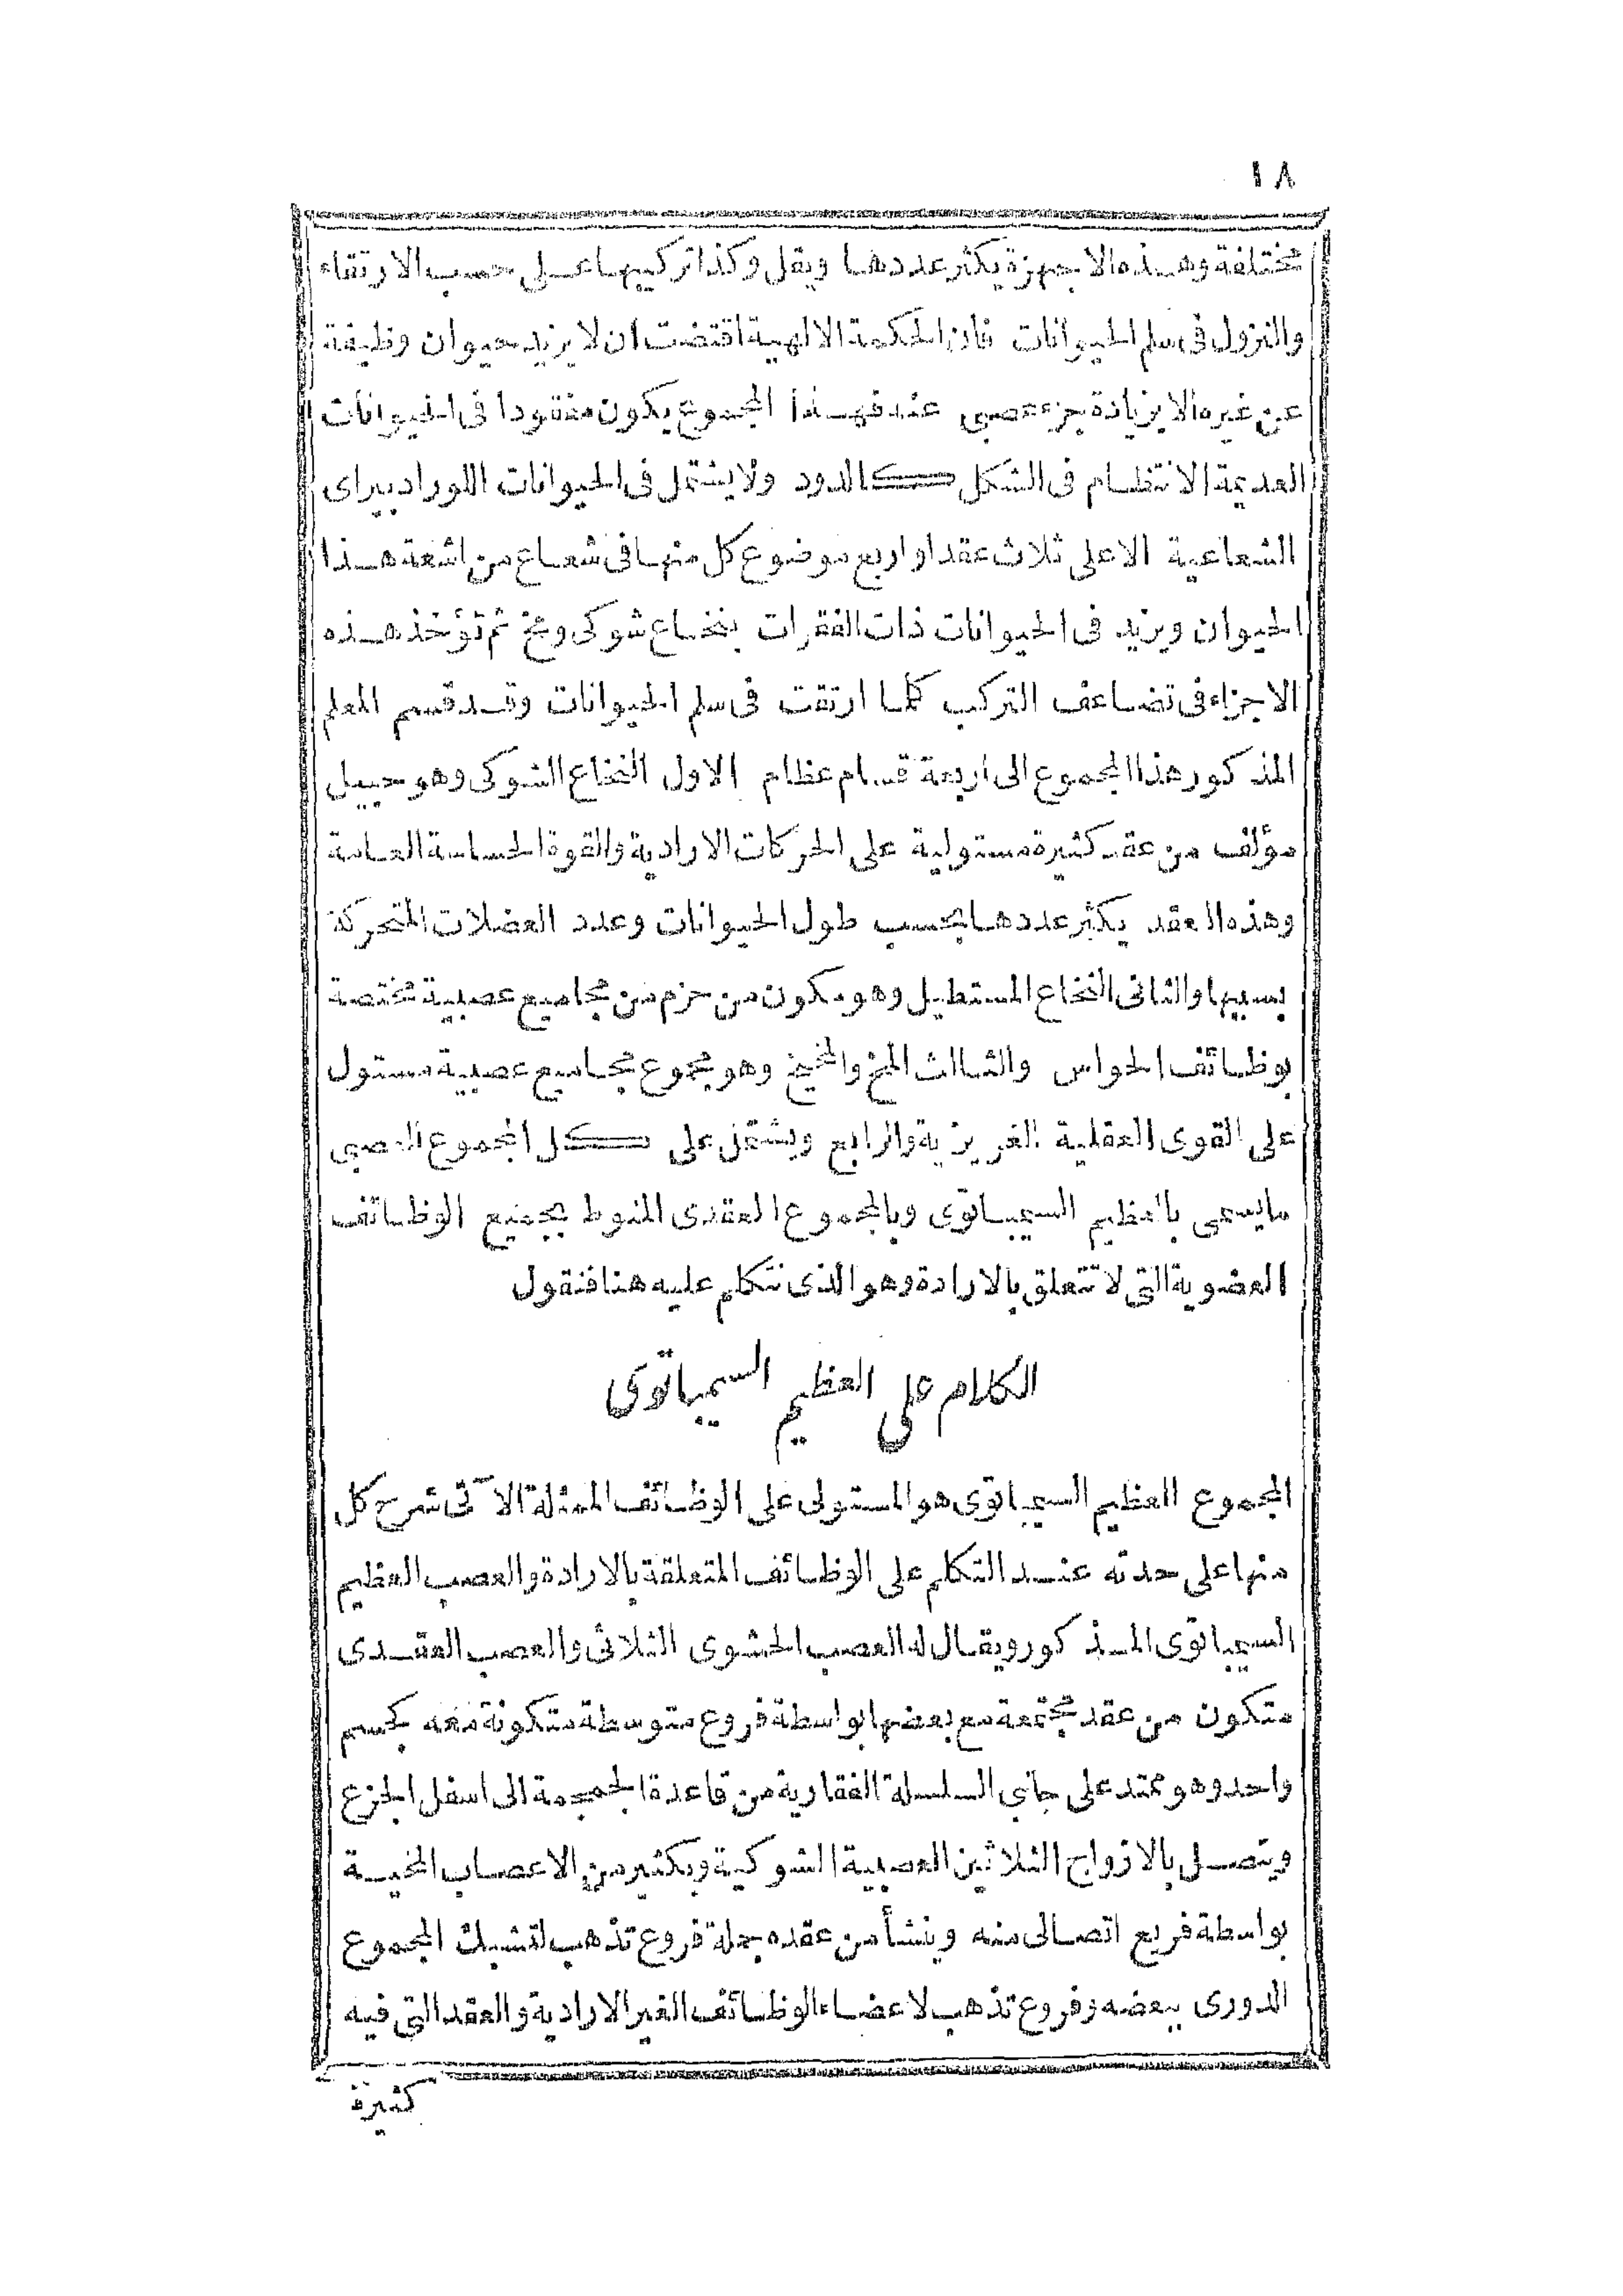 ١٨
مختلفة وهذه الاجهزة يكثر عددها ويقل وكذا تركيبها على حسب الارتقاء
والنزول فى سلم الحيوانات فان الحكمة الالهية اقتضت ان لا يزيد حيوان وظيفة
عن غيره الا بزيادة جزء عصبى عنه فهذا المجموع يكون مفقودا فى الحيوانات
العديمة الانتظام فى الشكل كالدود ولا يشتمل فى الحيوانات اللوراديبراى
الشعاعية الا على ثلاث عقد او اربع موضوع كل منها فى شعاع من اشعة هذا
الحيوان ويزيد فى الحيوانات ذات الفقرات بنخاع شوكى ومخ ثم تؤخذ هذه
الاجزاء فى تضاعف التركب كلما ارتقت فى سلم الحيوانات وقد قسم المعلم
المذكور هذا المجموع الى اربعة قسام عظام الاول النخاع الشوكى وهو حبيل
مؤلف من عقد كثيرة مستولية على الحركات الارادية والقوة الحساسة العامة
وهذه العقد يكثر عددها بحسب طول الحيوانات وعدد العضلات المتحركة
بسببها والثانى النخاع المستطيل وهو مكون من حزم من مجاميع عصبية مختصة
بوظائف الحواس والثالث المخ والمخيخ وهو مجموع مجاميع عصبية مستول
على القوى العقلية الغريزية والرابع ويشتمل على كل المجموع العصبى
مايسمى بالعظيم السيمباتوى وبالمجموع العقدى المنوط بجميع الوظائف
العضوية التى لا تتعلق بالارادة وهو الذى نتكلم عليه هنا فنقول
الكلام على العظيم السيمباتوى
المجموع العظيم السيمباتوى هو المستولى على الوظائف الممثلة الآتى شرح كل
منها على حدته عند التكلم على الوظائف المتعلقة بالارادة والعصب العظيم
السيمباتوى المذكور ويقال له العصب الحشوى الثلاثى والعصب العقدى
متكون من عقد مجتمعة مع بعضها بواسطة فروع متوسطة متكونة معه كجسم
واحد وهو ممتد على جانبى السلسلة الفقارية من قاعدة الجمجمة الى اسفل الجزع
ويتصل بالازواج الثلاثين العصبية الشوكية وبكثير من الاعصاب المخية
بواسطة فريع اتصالى منه وينشأ من عقده جملة فروع تذهب لتشبك المجموع
الدورى ببعضه وفروع تذهب لاعضاء الوظائف الغير الارادية والعقد التى فيه
كثيرة